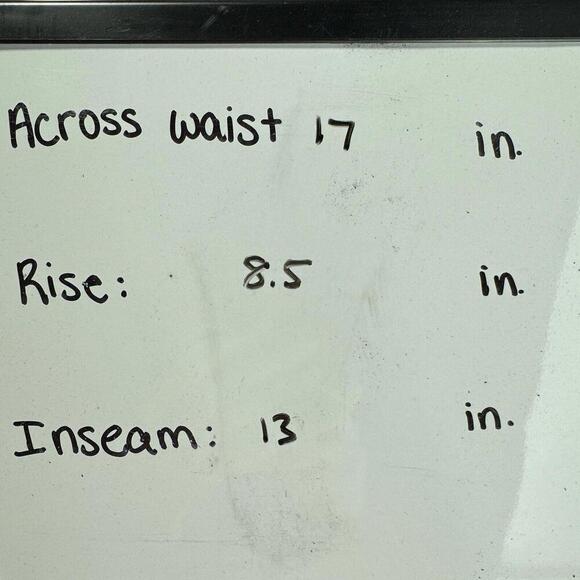 Across waist 17 in.
Rise: 8.5 in.
Inseam: 13 in.